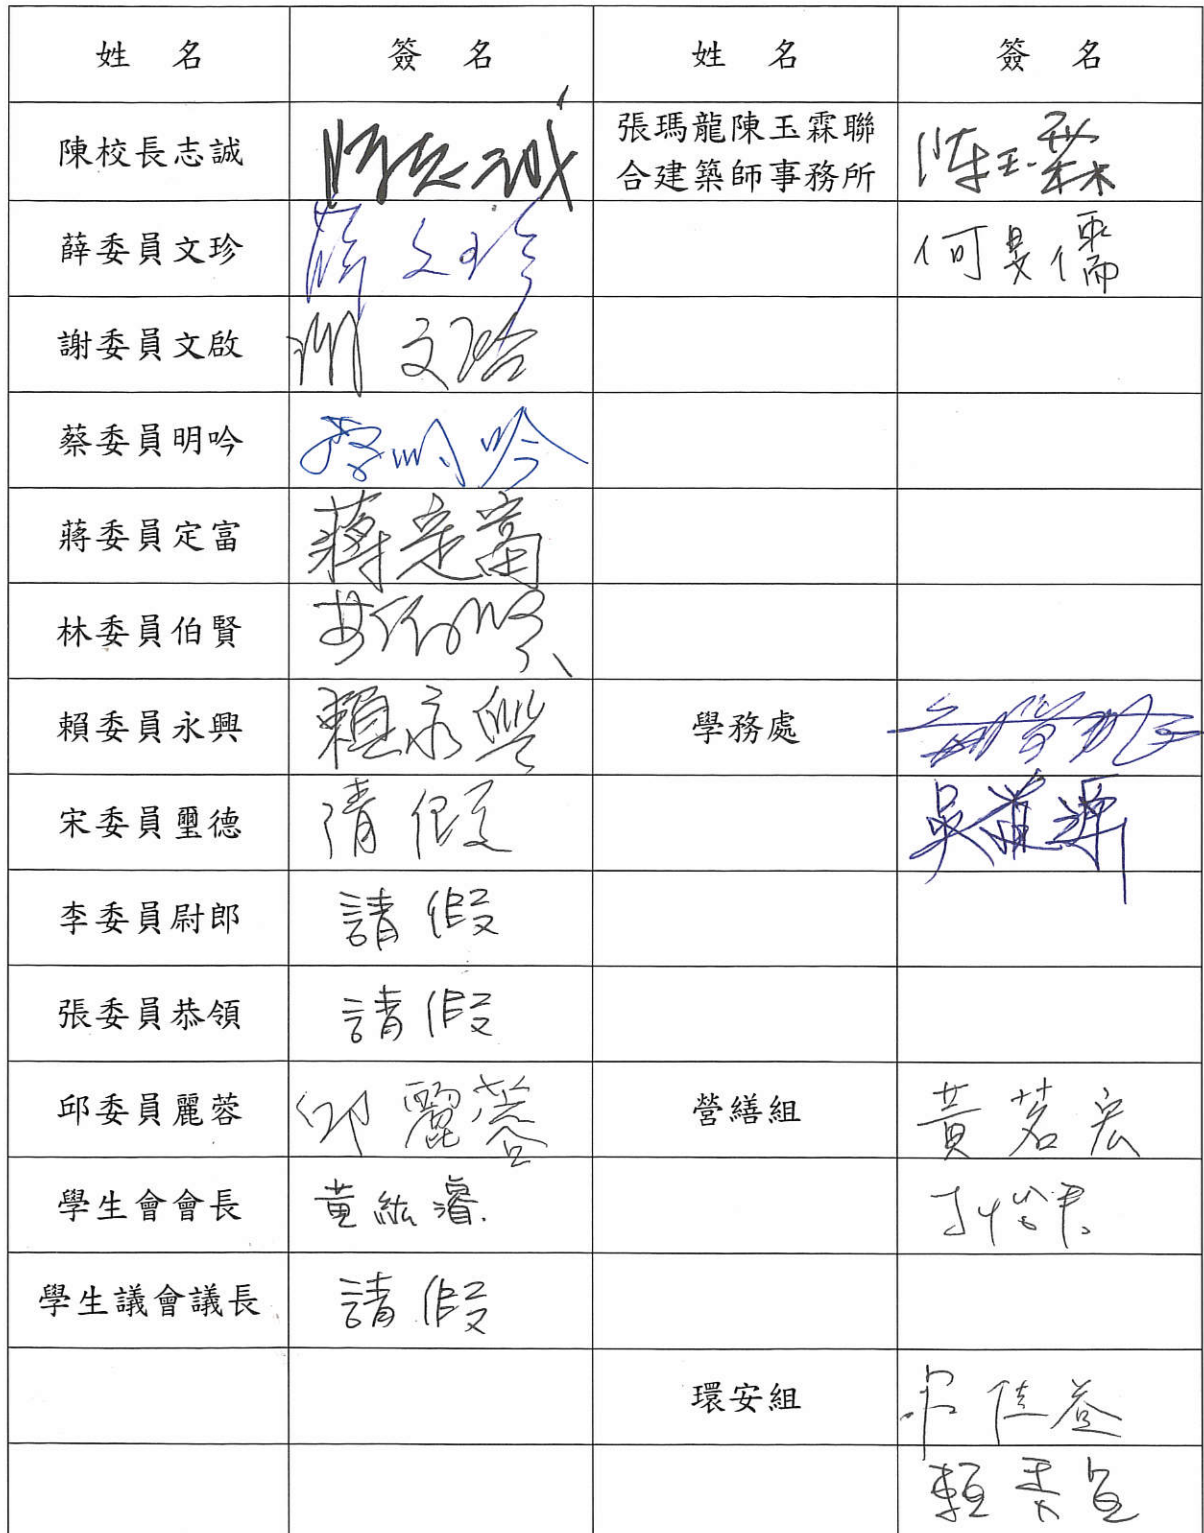 姓 名 簽 名 姓 名 簽 名
陳校長志誠 陳志誠 張瑪龍陳玉霖聯
合建築師事務所 陳玉霖
薛委員文珍 薛文珍 何旻儒
謝委員文啟 謝文啟
蔡委員明吟 蔡明吟
蔣委員定富 蔣定富
林委員伯賢 林伯賢
賴委員永興 賴永興 學務處
宋委員璽德 請假 吳
李委員尉郎 請假
張委員恭領 請假
邱委員麗蓉 邱麗蓉 營繕組 黃茗宏
學生會會長 黃紘濬
學生議會議長 請假
環安組
賴